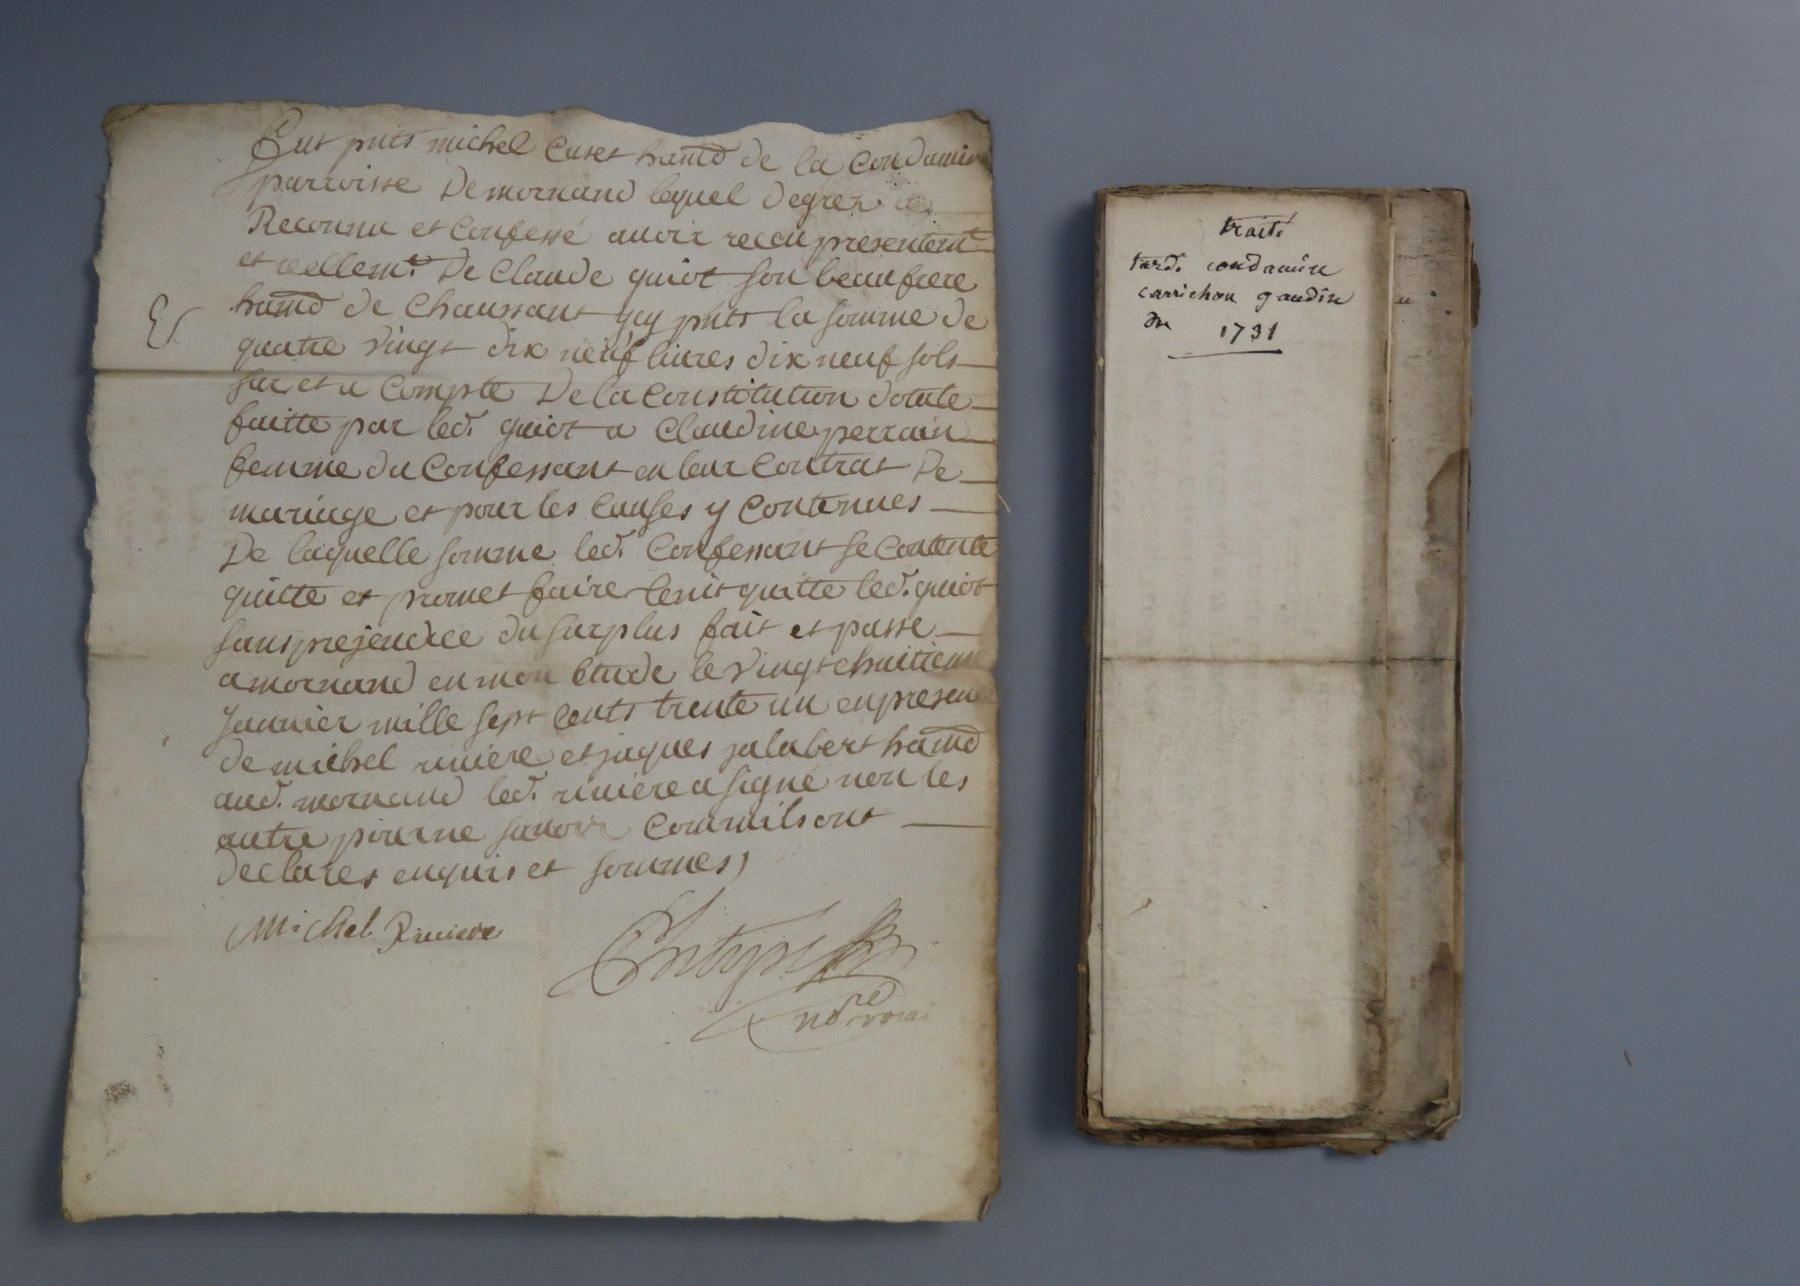 Fut pnts michel Cuset hantd de la Condamin
parroisse De mornand lequel degrez a
Reconnu et Confessé avoir receu presentemt
et reellemt. De Claude guiot son beaufrere
hantd de Chaussant icy pnts la somme de
quatre vingt dix neuf livres dix neuf sols
sur et a Compte De la Constitution dotale
faitte par led. guiot a Claudine perrain
femme du Confessant en leur Contrat De
mariage et pour les Causes y Contenues
De laquelle somme led. Confessant se Contente
quitte et promet faire tenir quitte led. guiot
sans prejendice du surplus fait et passe
a mornand en mon Etude le vingt huitieme
Janvier mille sept Cents trente un en presence
de michel riviere et jaques jalabert hantd
aud. mornand led. riviere a signé non les
autre pour ne savoir Comm ils ont
declares enquis et sommes
Michel Riviere
traité
tard. condamin
carrichon gaudin
Du 1731